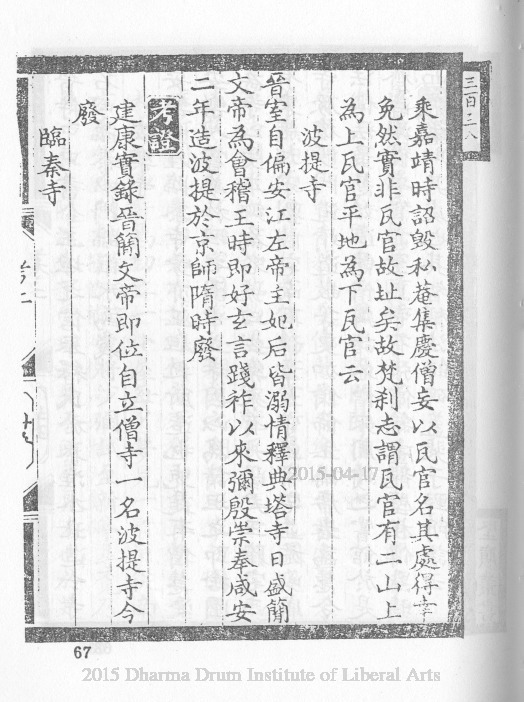 三百三八
乘嘉靖時詔毀私菴集慶僧妄以瓦官名其處得幸
免然實非瓦官故址矣故梵刹志謂瓦官有二山上
為上瓦官平地為下瓦官云
波提寺
晉室自偏安江左帝主妃后皆溺情釋典塔寺日盛簡
文帝為會稽王時即好玄言踐祚以來彌殷崇奉咸安
二年造波提於京師隋時廢
考證
建康實錄晉簡文帝即位自立僧寺一名波提寺今
廢
臨秦寺
2015-04-17
67
2015 Dharma Drum Institute of Liberal Arts